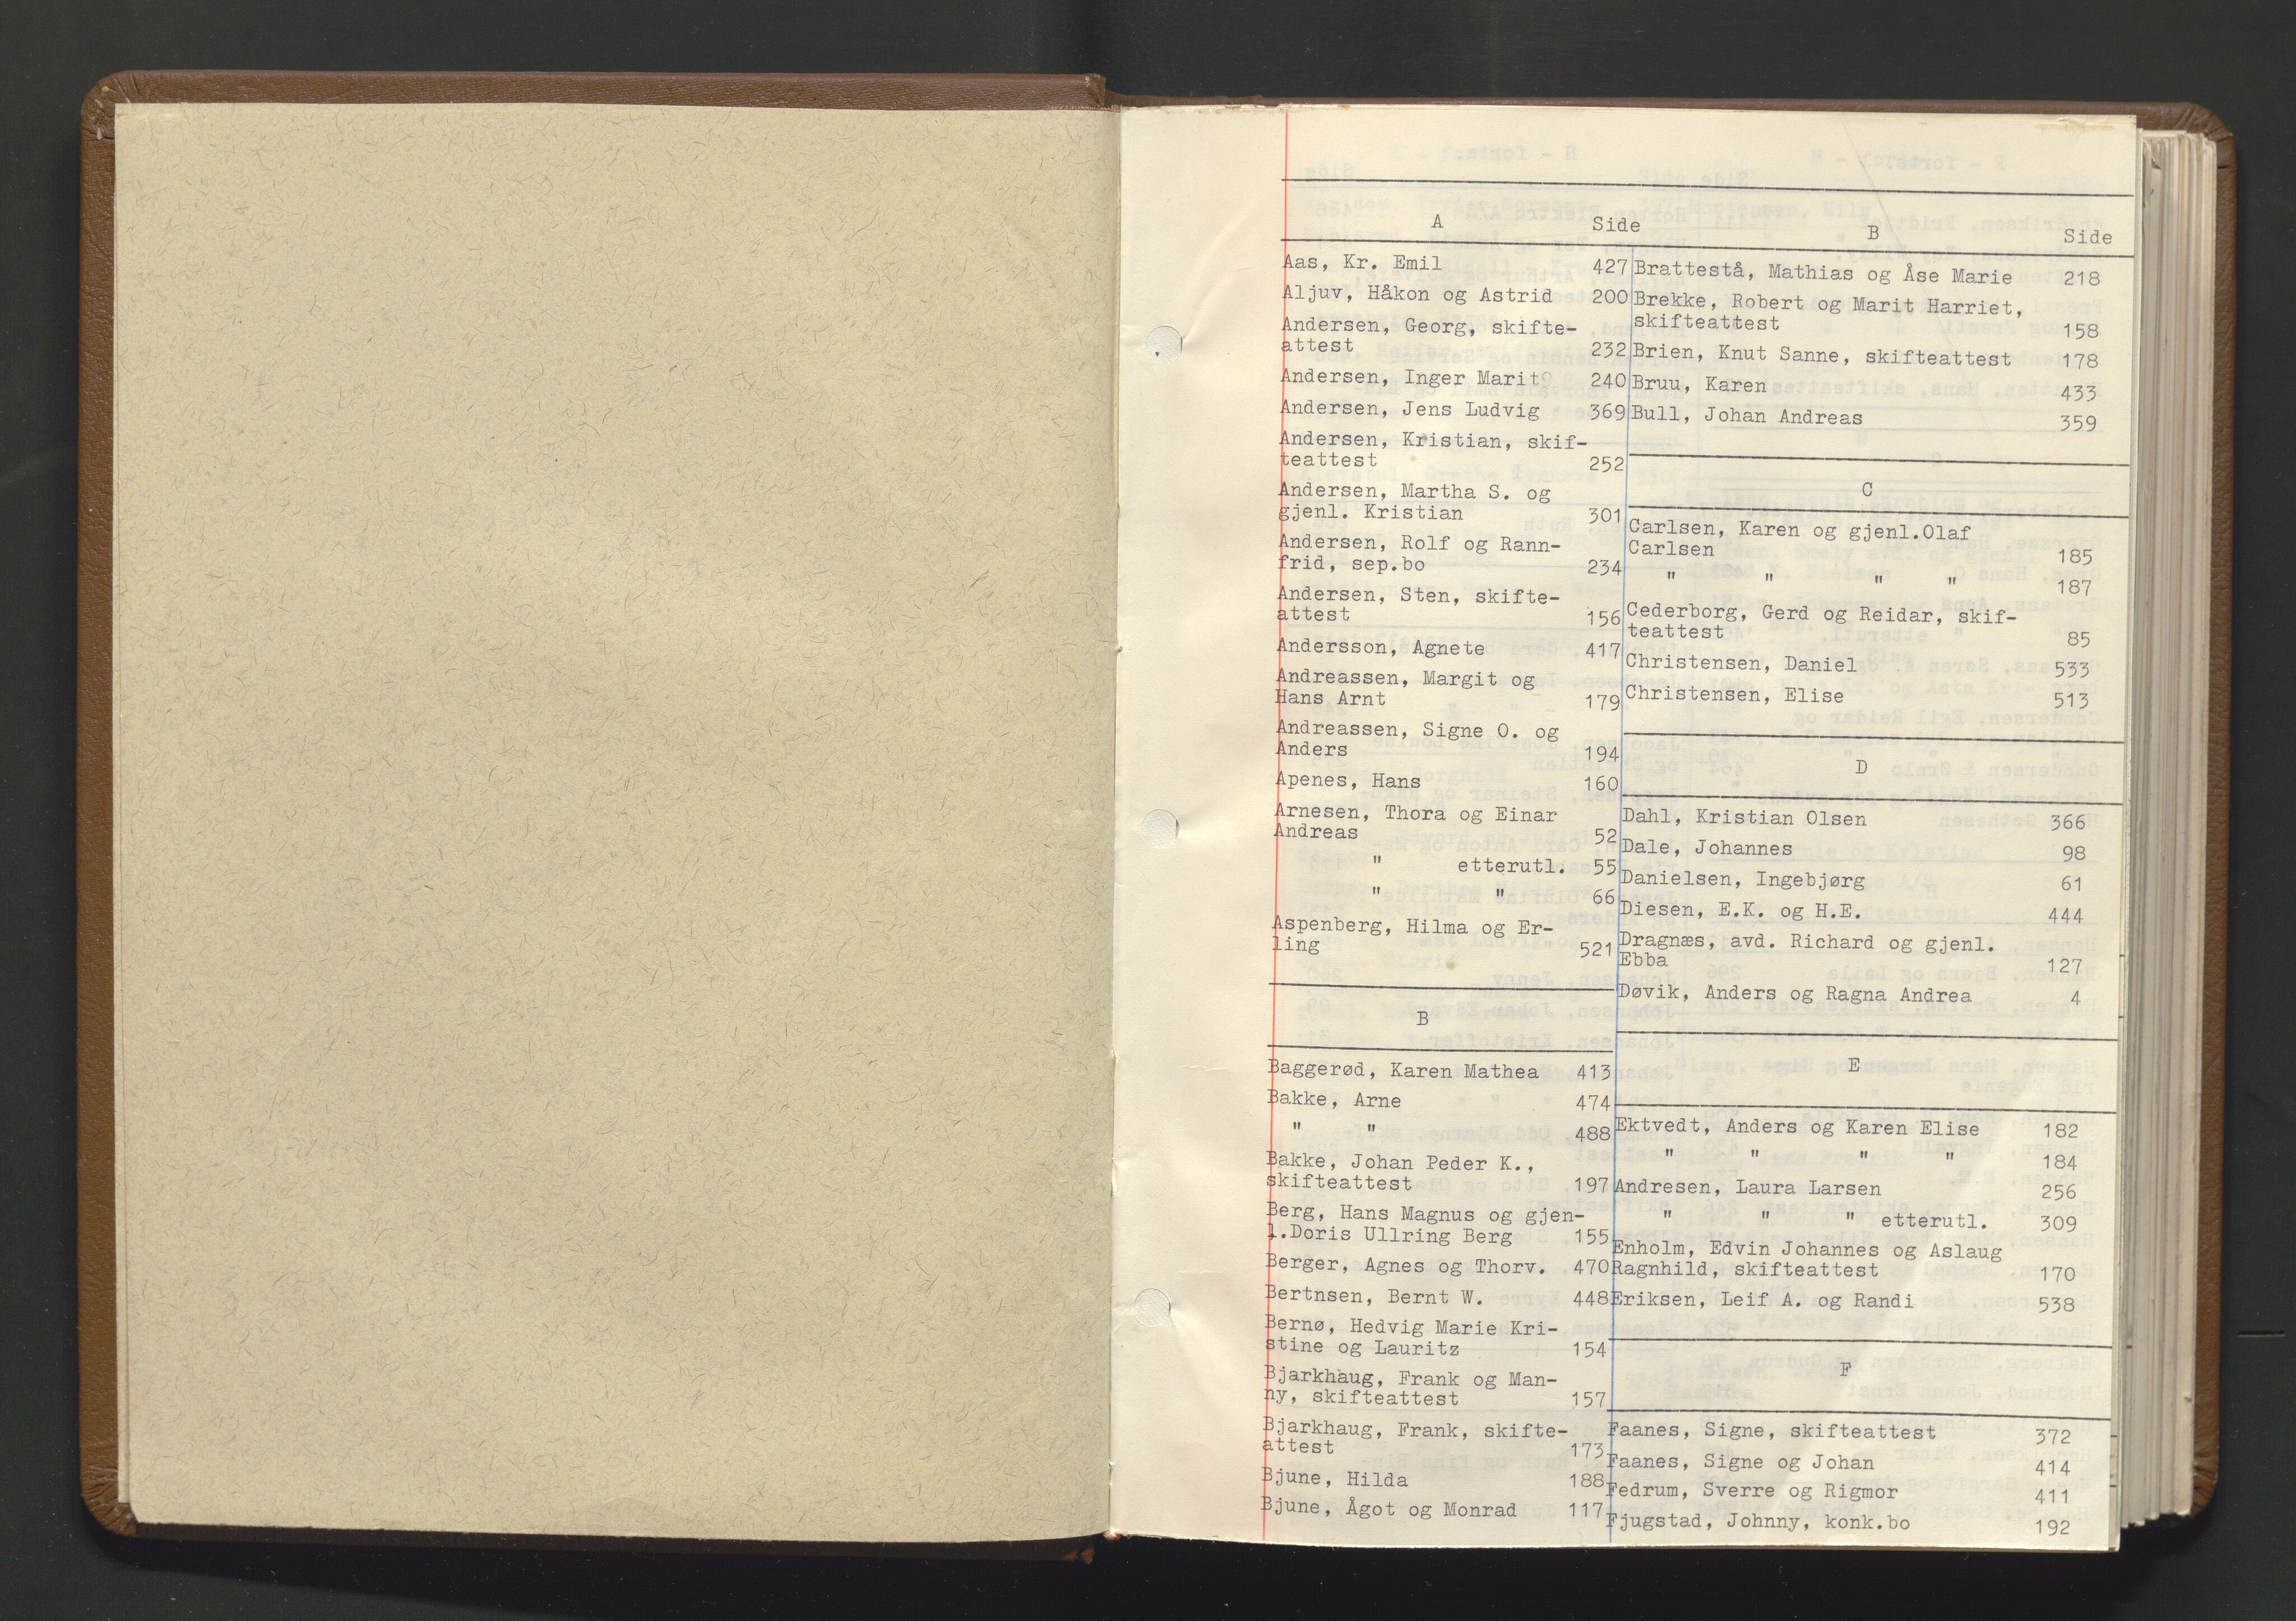 A Side
Aas, Kr. Emil 427
Aljuv, Håkon og Astrid 200
Andersen, Georg, skifte-
attest 232
Andersen, Inger Marit 240
Andersen, Jens Ludvig 369
Andersen, Kristian, skif-
teattest 252
Andersen, Martha S. og
gjenl. Kristian 301
Andersen, Rolf og Rann-
frid, sep.bo 234
Andersen, Sten, skifte-
attest 156
Andersson, Agnete 417
Andreassen, Margit og
Hans Arnt 179
Andreassen, Signe O. og
Anders 194
Apenes, Hans 160
Arnesen, Thora og Einar
Andreas 52
" etterutl. 55
" " 66
Aspenberg, Hilma og Er-
ling 521
B
Baggerød, Karen Mathea 413
Bakke, Arne 474
" " 488
Bakke, Johan Peder K.,
skifteattest 197
Berg, Hans Magnus og gjen-
l.Doris Ullring Berg 155
Berger, Agnes og Thorv. 470
Bertnsen, Bernt W. 448
Bernø, Hedvig Marie Kri-
stine og Lauritz 154
Bjarkhaug, Frank og Man-
ny, skifteattest 157
Bjarkhaug, Frank, skifte-
attest 173
Bjune, Hilda 188
Bjune, Ågot og Monrad 117
B Side
Brattestå, Mathias og Åse Marie 218
Brekke, Robert og Marit Harriet,
skifteattest 158
Brien, Knut Sanne, skifteattest 178
Bruu, Karen 433
Bull, Johan Andreas 359
C
Carlsen, Karen og gjenl.Olaf
Carlsen 185
" " " " 187
Cederborg, Gerd og Reidar, skif-
teattest 85
Christensen, Daniel 533
Christensen, Elise 513
D
Dahl, Kristian Olsen 366
Dale, Johannes 98
Danielsen, Ingebjørg 61
Diesen, E.K. og H.E. 444
Dragnæs, avd. Richard og gjenl.
Ebba 127
Døvik, Anders og Ragna Andrea 4
E
Ektvedt, Anders og Karen Elise 182
" " " " 184
Andresen, Laura Larsen 256
" " " etterutl. 309
Enholm, Edvin Johannes og Aslaug
Ragnhild, skifteattest 170
Eriksen, Leif A. og Randi 538
F
Faanes, Signe, skifteattest 372
Faanes, Signe og Johan 414
Fedrum, Sverre og Rigmor 411
Fjugstad, Johnny, konk.bo 192